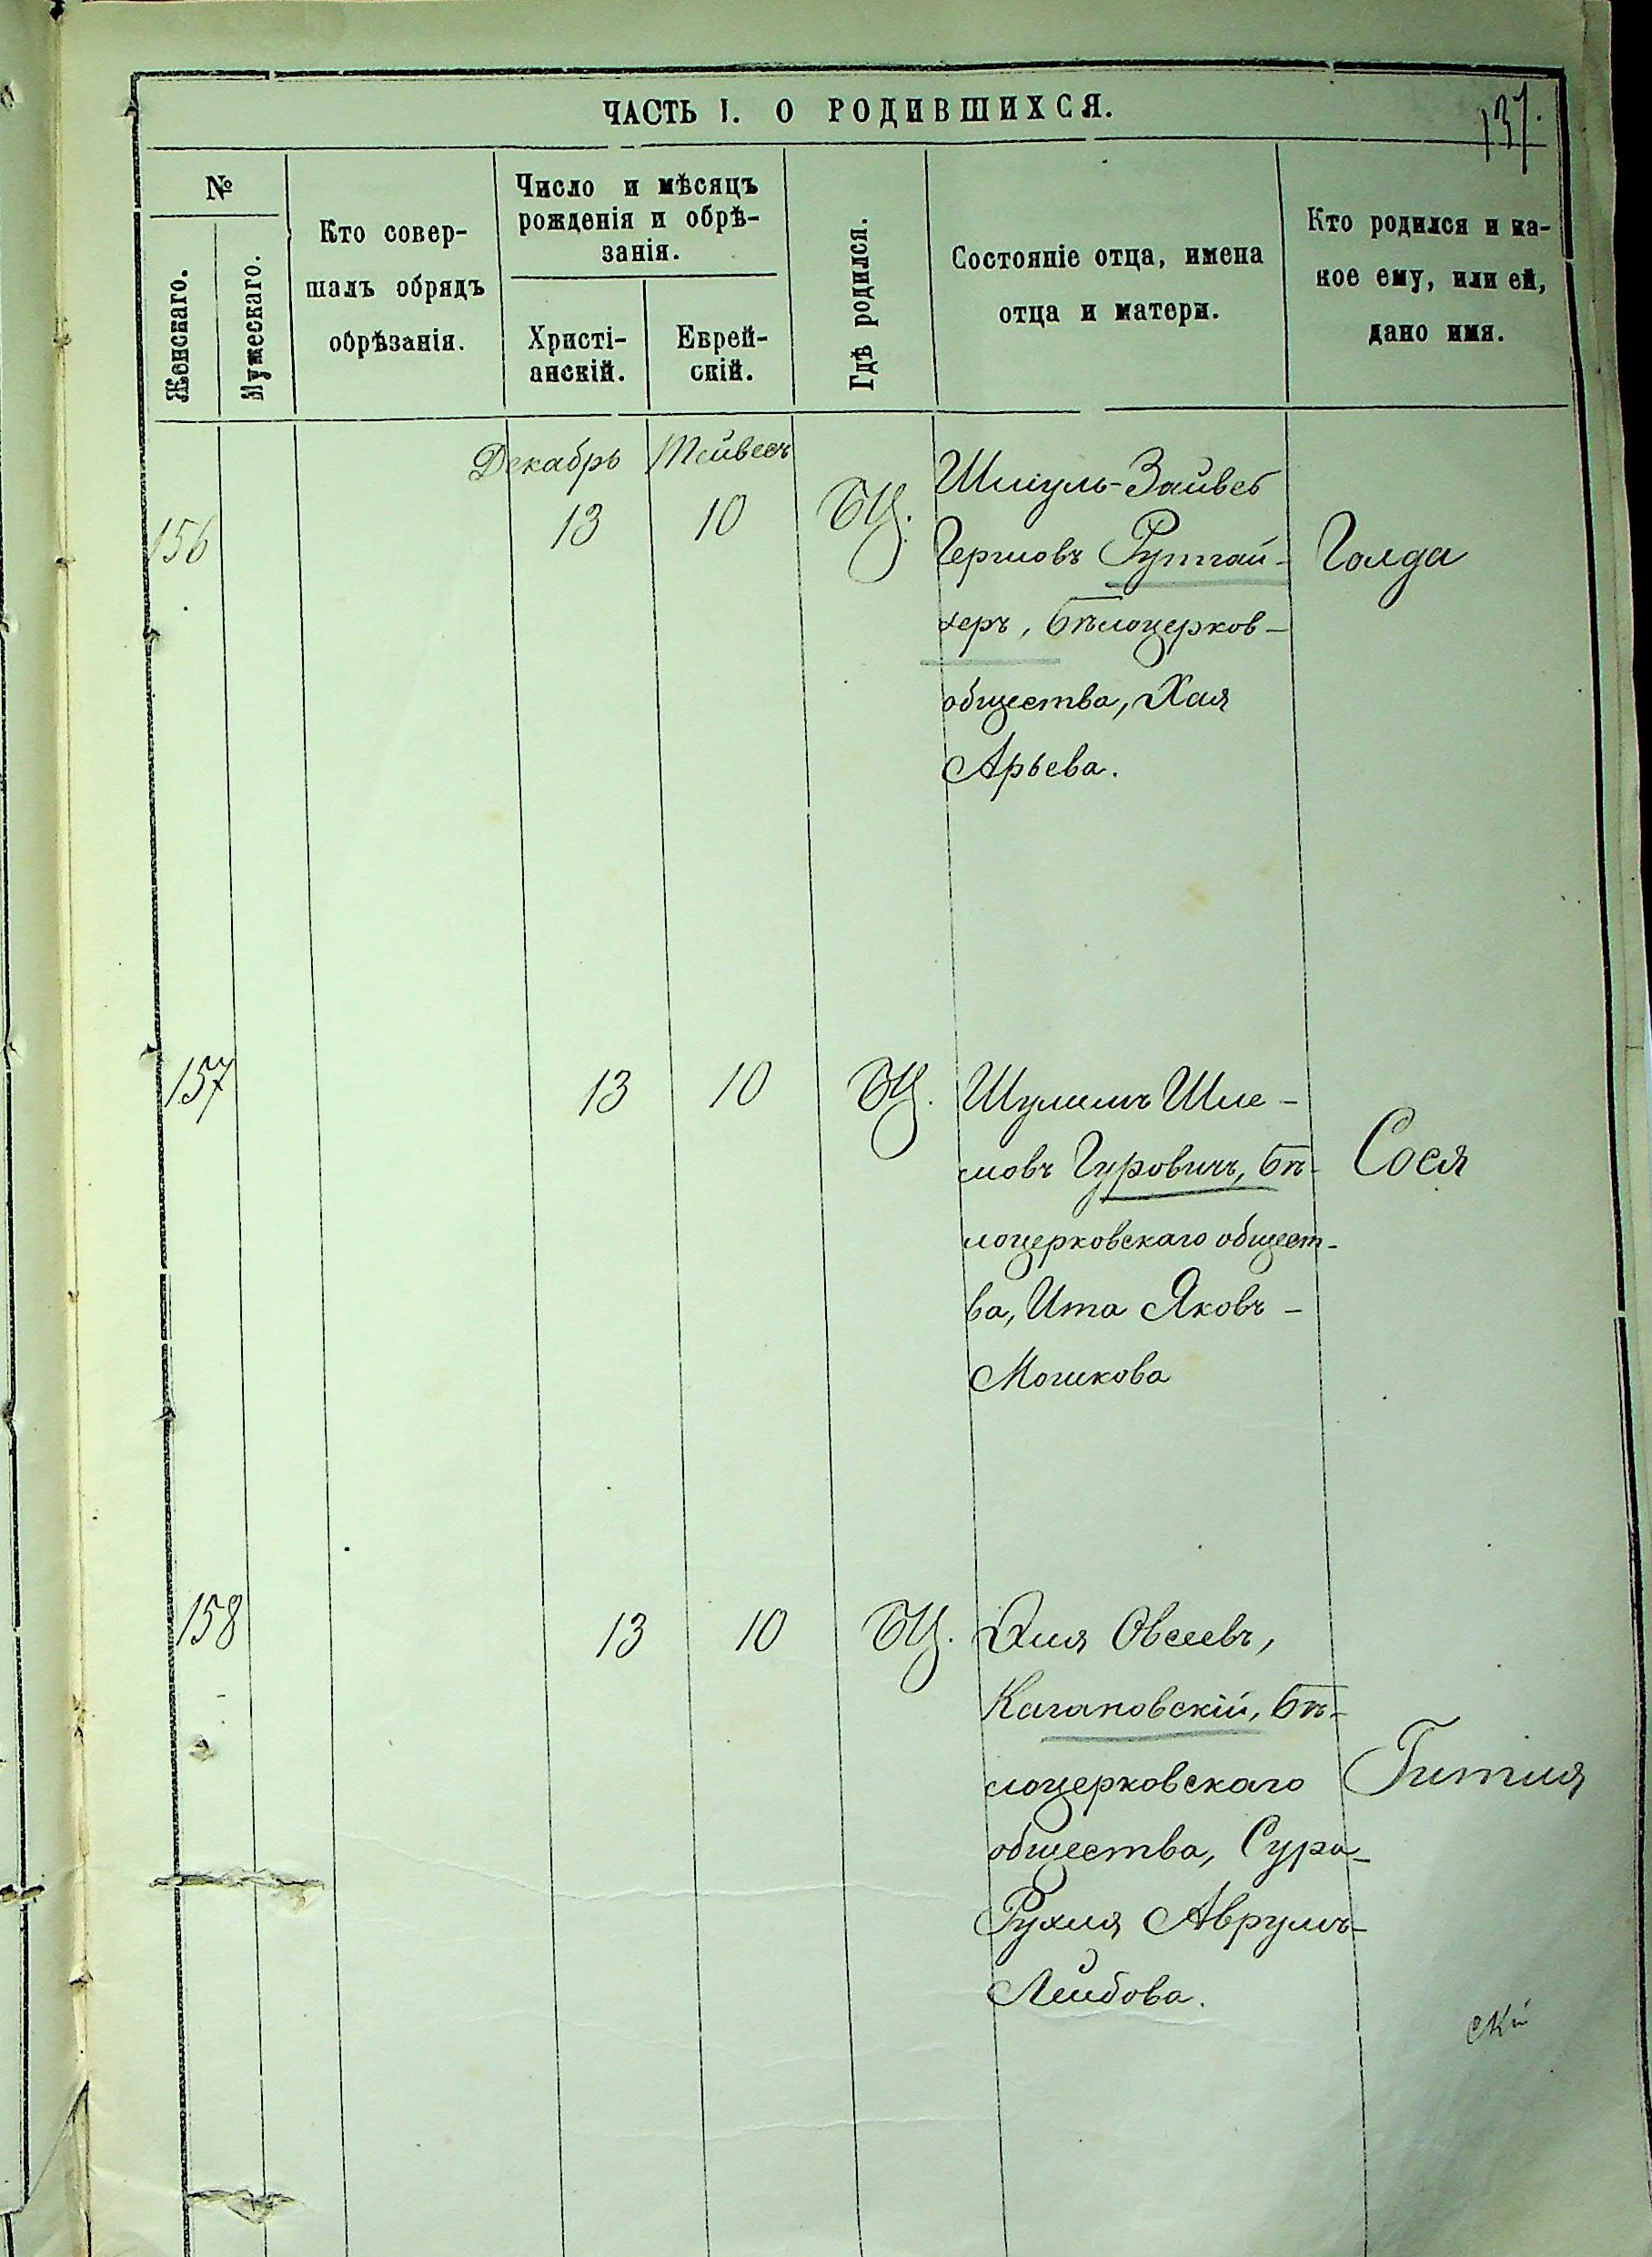 ЧАСТЬ I. О РОДИВШИХСЯ.
137.
№
Женскаго.
Мужескаго.
Кто совер-
шалъ обрядъ
обрѣзанія.
Число и мѣсяцъ
рожденія и обрѣ-
занія.
Христі-
анскій.
Еврей-
скій.
Гдѣ родился.
Состояніе отца, имена
отца и матери.
Кто родился и ка-
кое ему, или ей,
дано имя.
Декабрь Тейвесъ
156 13 10 БЦ.
Шмуль-Зайвеб
Гершовъ Рутгай-
херъ, Бѣлоцерков-
общества, Хая
Арьева.
Голда
157 13 10 БЦ.
Шулимъ Шле-
мовъ Гуровичъ, Бѣ-
лоцерковскаго общест-
ва, Ита Яковъ-
Мошкова
Сося
158 13 10 БЦ.
Эля Овсеевъ,
Кагановскій, Бѣ-
лоцерковскаго
общества, Сура-
Рухля Аврумъ-
Лейбова.
Гитля
скй